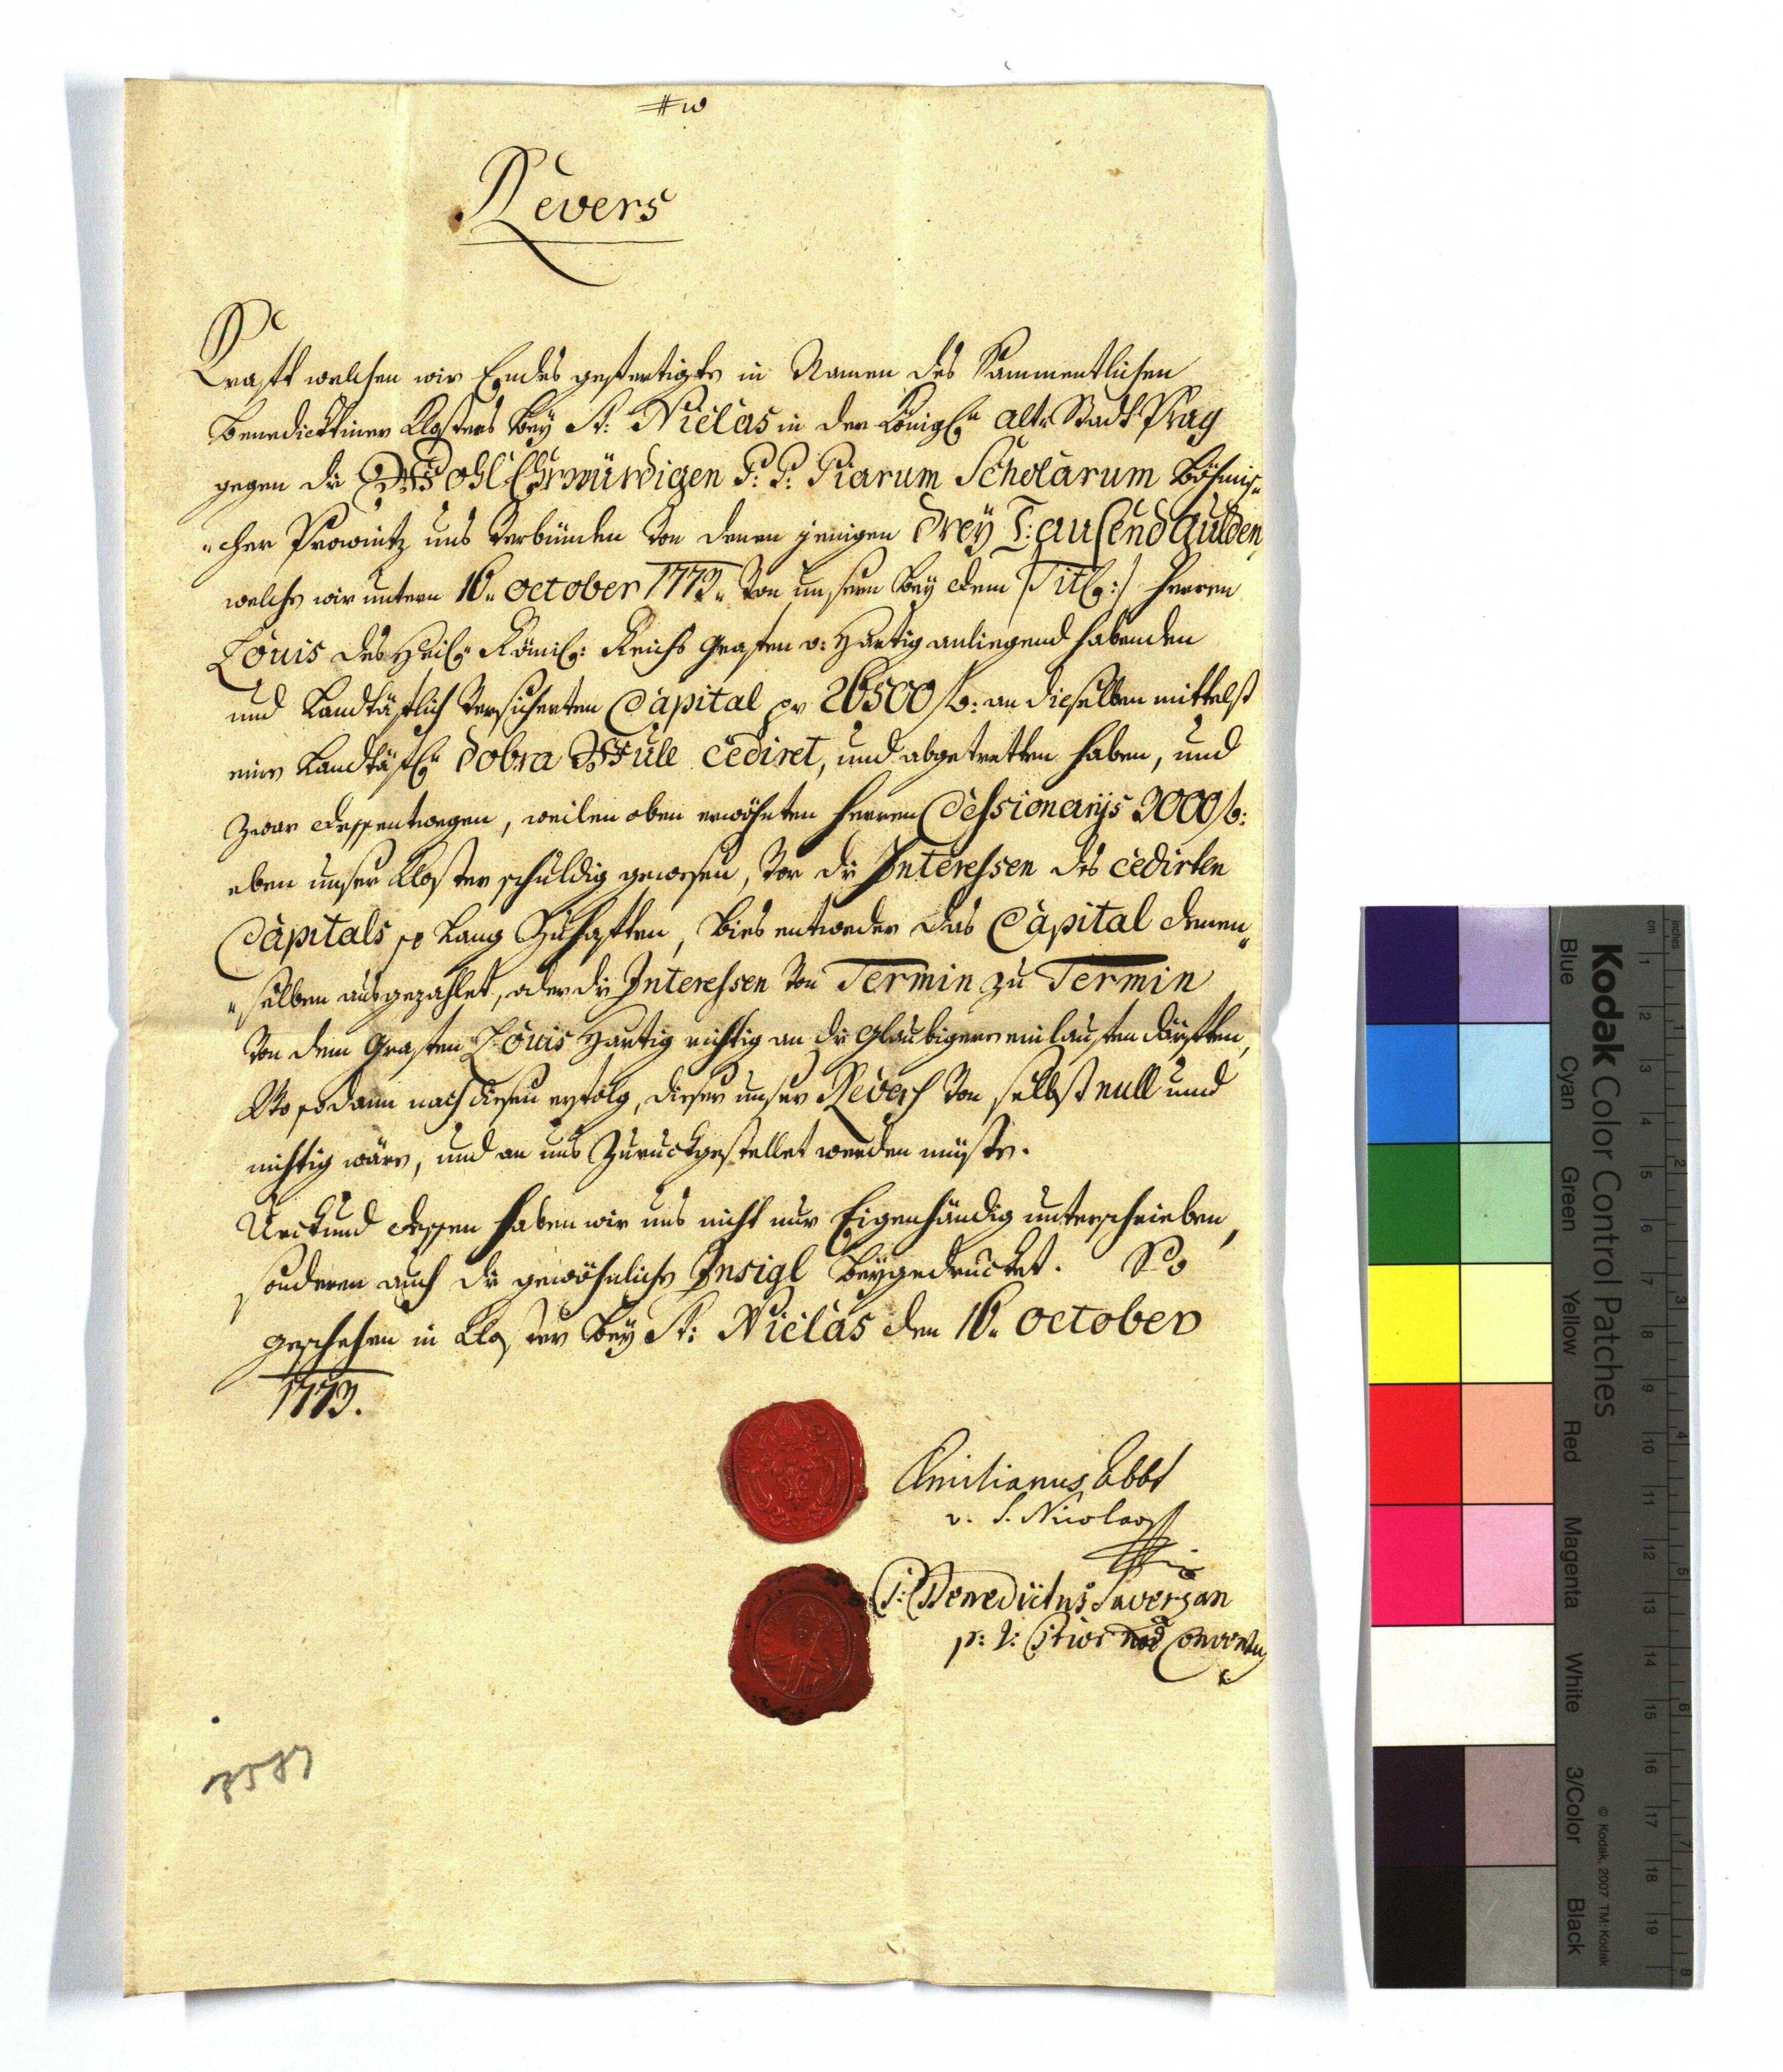 Revers
Krafft welchen wir Endes gefertigte in Namen des Sammentlichen
Benedicktiner Closters bey St: Niclas in der Königln Alt Stadt Prag
gegen die Wohl Ehrwürdigen P: P: Piarum Scholarum Böhmis„
„cher Prowintz uns verbünden von denen jenigen drey Tausend Gulden
welche wir untern 16. october 1773. von unserm bey dem /Titl:/ Herren
Louis des Heil: Römil: Reichs Grafen v: Hartig anliegend habenden
und Landtäflich versicherten Capital pr 26500 f: an dieselben mittelst
einer Landtäfln dobra Wule cediret, und abgetretten haben, und
zwar dessentwegen, weilen oben erwöhnten Herren Cessionarijs 3000 f:
eben unser Closter schuldig gewesen, vor die Interessen des cedirten
Capitals so lang zuhafften, bies entweder das Capital denen„
„selben ausgezahlet, oder die Interessen von Termin zu Termin
von dem Grafen Louis Hartig richtig an die Glaubigere einlaufen dürfften,
Wo sodann nach diesen erfolg, dieser unser Revers von selbst null und
nichtig wäre, und an uns zuruckgestellet werden müste.
Urckund dessen haben wir uns nicht nur Eigenhändig unterschrieben,
sonderen auch die gewöhnliche Insigl beygedrucket. So
geschehen in Closter bey St: Niclas den 16. october
1773.
Emilianus Abbt
v. S. Nicolao
P: Benedictus Saverzan
p: t: Prior Conventu
Kodak Color Control Patches
Blue Cyan Green Yellow Red Magenta White 3/Color Black
© Kodak, 2007 TM: Kodak
inches 1 2 3 4 5 6 7 8
cm 1 2 3 4 5 6 7 8 9 10 11 12 13 14 15 16 17 18 19